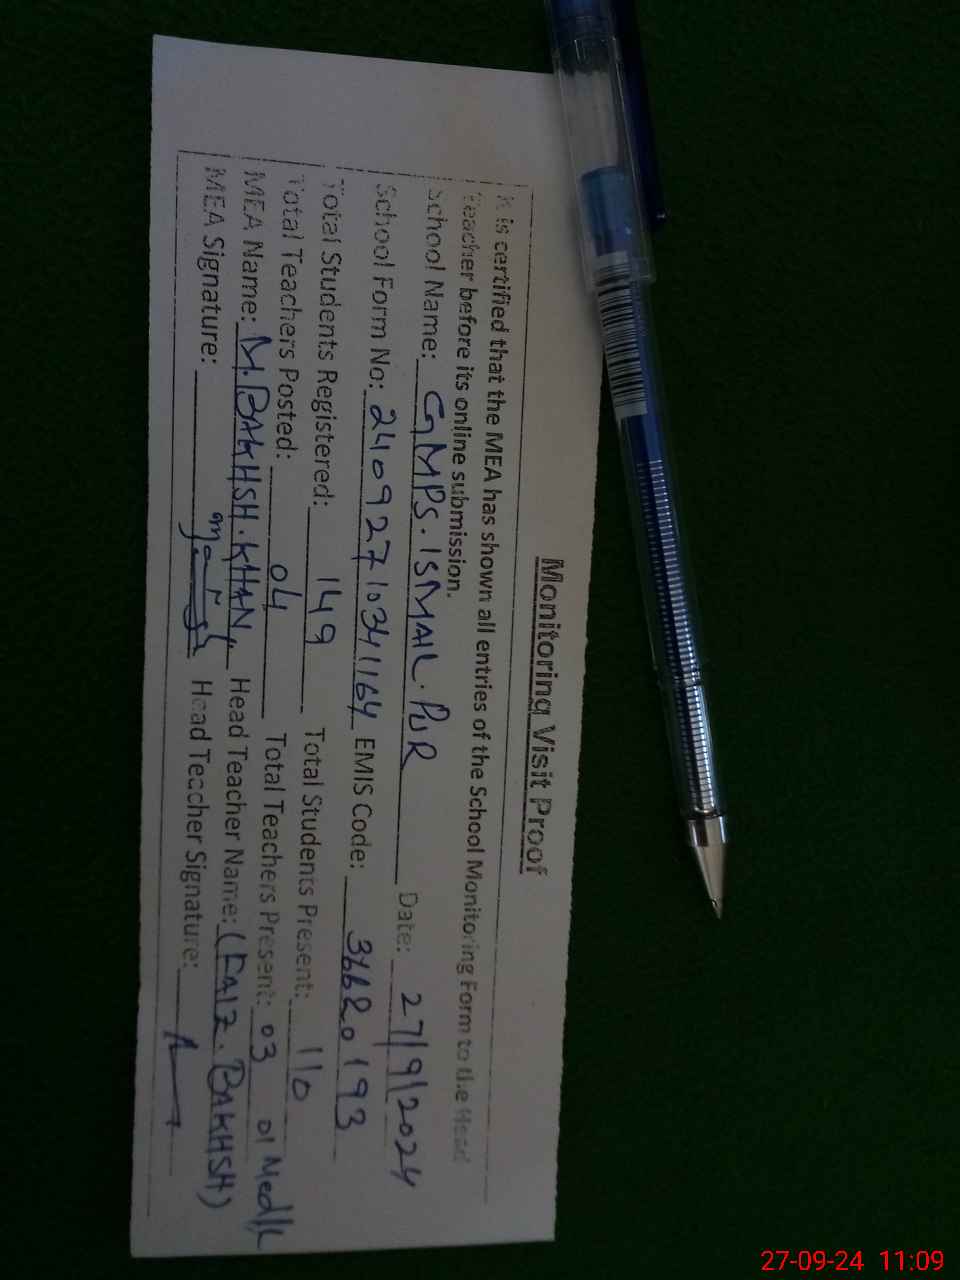 Monitoring Visit Proof
It is certified that the MEA has shown all entries of the School Monitoring Form to the Head
teacher before its online submission.
School Name: GMPS. ISMAIL. PUR Date: 27/9/2024
School Form No: 24092710341164 EMIS Code: 36620193
Total Students Registered: 149 Total Students Present: 110
Total Teachers Posted: 04 Total Teachers Present: 03 01 Med/L
MEA Name: M. BAKHSH. KHAN, Head Teacher Name: (FAIZ. BAKHSH)
MEA Signature: Head Teacher Signature:
27-09-24 11:09